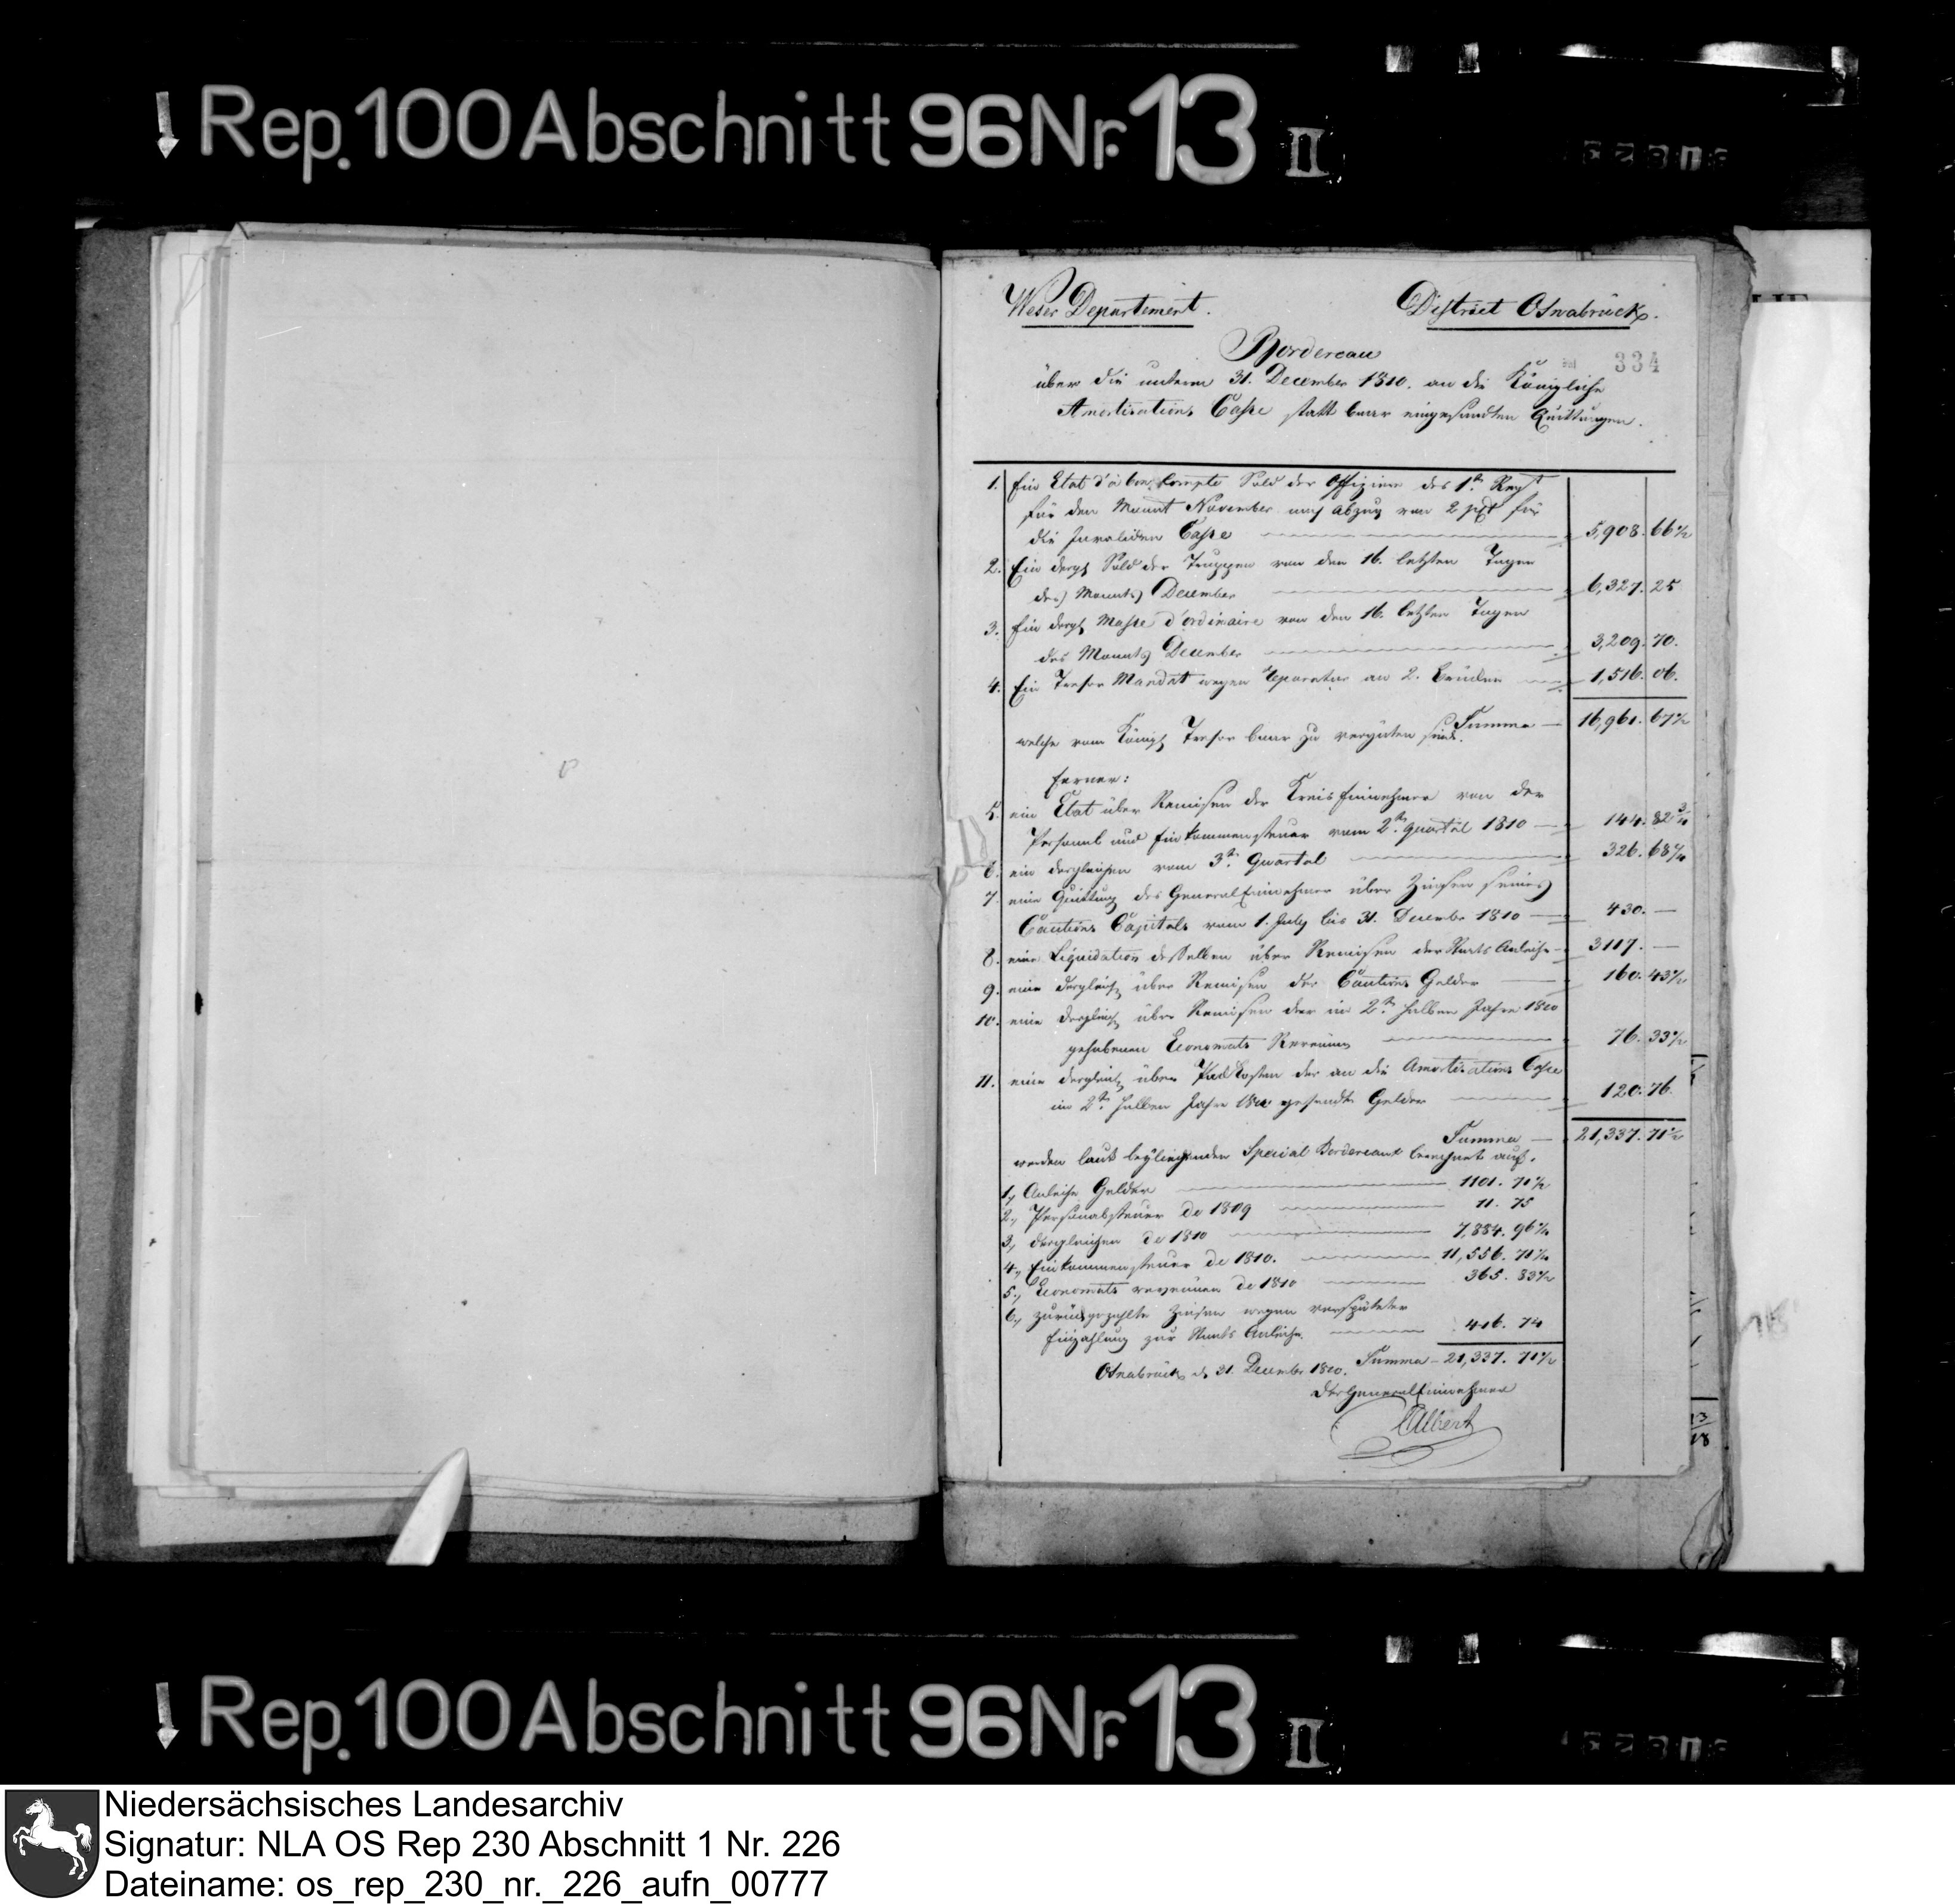 Rep. 100 Abschnitt 96 Nr. 13 II
Weser Departement.
District Osnabrück.
Bordereau
334
über die unterm 31. December 1810. an die Königliche
Amortisations Casse statt baar eingesandten Quittungen.
1. Ein Etat d'à bon Compte Sold der Offiziere des 1ten Regt
für den Monat November nach Abzug von 2 pCt für
die Invaliden Casse 5,908. 66½
2. Ein dergl. Sold der Truppen von den 16. letzten Tagen
des Monats December 6,327. 25
3. Ein dergl. Masse d'ordinaire von den 16. letzten Tagen
des Monats December 3,209. 70.
4. Ein Tresor Mandat wegen Reparatur an 2. 1,516. 06.
Summa 16,961. 67½
welche vom Königl. Tresor baar zu vergüten sind.
ferner:
5. ein Etat über Remisen der Kreis Einnehmer von der
Personal und Einkommensteuer vom 2ten Quartal 1810 144. 82¾
6. ein dergleichen vom 3ten Quartal 326. 68
7. eine Quittung des General Einnehmer über Zinsen seines
Cautions Capitals vom 1. July bis 31. Decembr 1810 430. —
8. eine Liquidation desselben über Remisen der Staats Anleihe 3117. —
9. eine dergleich. über Remisen der Cautions Gelder 160. 43½
10. eine dergleich. über Remisen der im 2ten halben Jahre 1810
gehobenen Economats Revenüen 76. 33½
11. eine dergleich. über Kosten der an die Amortisations Casse
im 2ten halben Jahre 1810 gesandte Gelder 120. 76.
Summa 21,337. 71½
werden laut beyliegenden Special Bordereaux berechnet auf:
1, Anleihe Gelder 1101. 71½
2, Personalsteuer de 1809 11. 75
3, dergleichen de 1810 7,884. 96
4, Einkommensteuer de 1810. 11,556. 71
5, Economats revenüen de 1810 365. 83½
6, zurückgezahlte Zinsen wegen verspäteter
Einzahlung zur Staats Anleihe 416. 74
Summa 21,337. 71½
Osnabrück d. 31. December 1810.
Der General Einnehmer
Albert
Rep. 100 Abschnitt 96 Nr. 13 II
Niedersächsisches Landesarchiv
Signatur: NLA OS Rep 230 Abschnitt 1 Nr. 226
Dateiname: os_rep_230_nr._226_aufn_00777